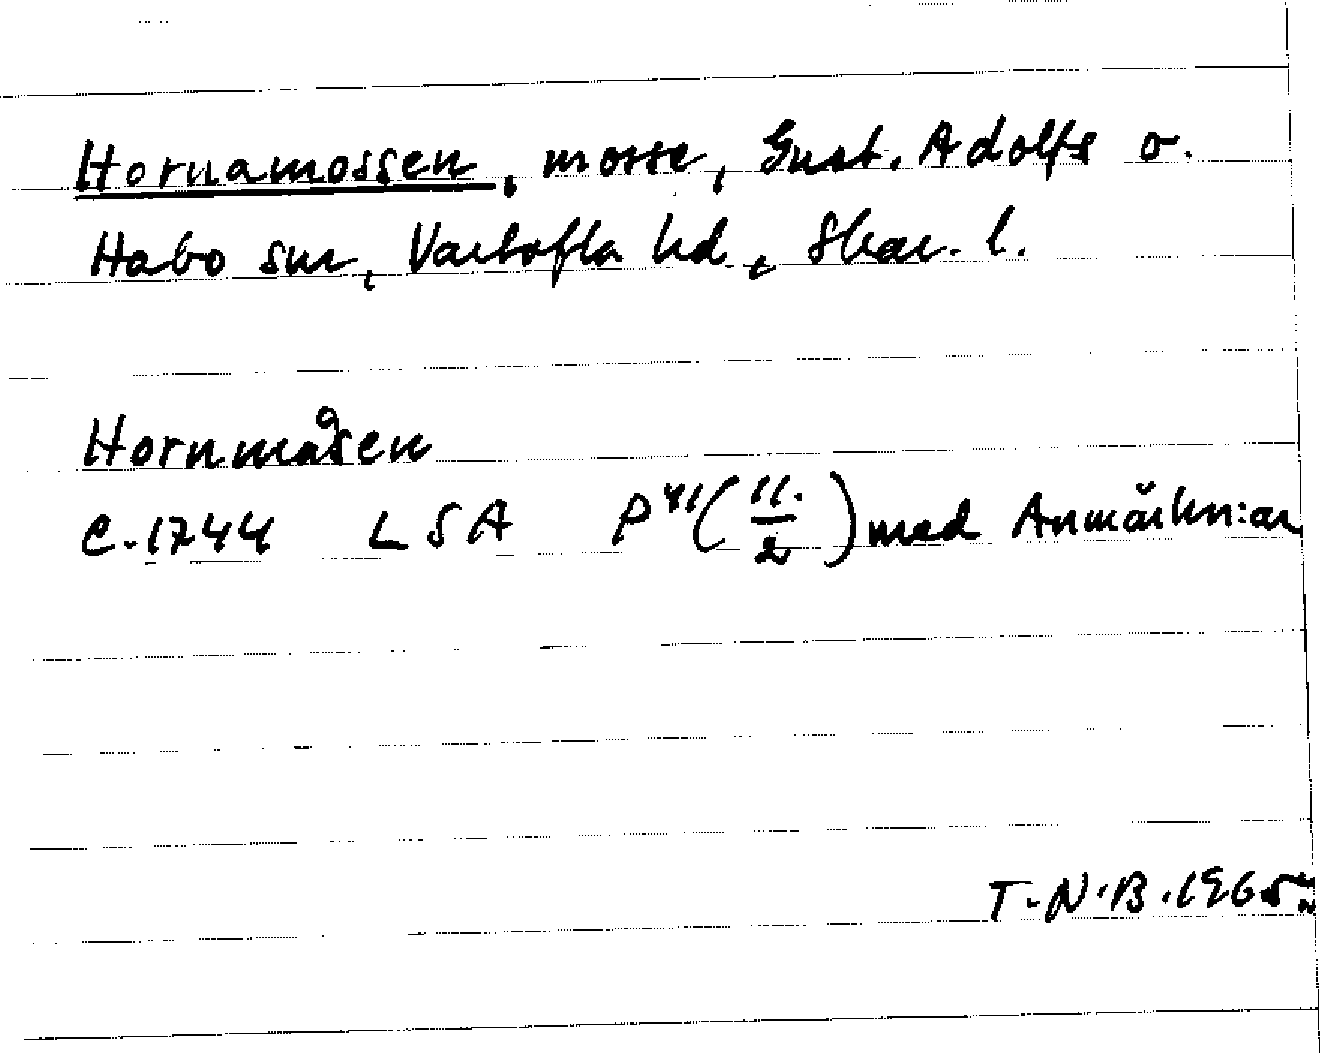 Hornamossen, mosse, Gust. Adolfs o.
Habo snr, Vartofta hd, Skar. l.
Hornmåsen
C. 1744 LSA P (11./2) med Anmärkn:ar
T.N.B. 1965